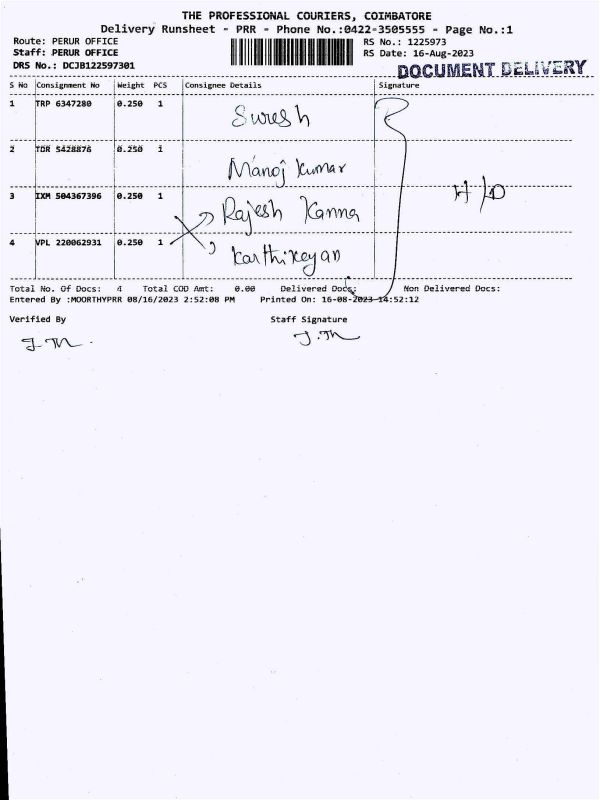 THE PROFESSIONAL COURIERS, COIMBATORE
Delivery Runsheet - PRR - Phone No.:0422-3505555 - Page No.:1
Route: PERUR OFFICE RS No.: 1225973
Staff: PERUR OFFICE RS Date: 16-Aug-2023
DRS No.: DCJB122597301 DOCUMENT DELIVERY
S No Consignment No Weight PCS Consignee Details Signature
1 TRP 6347280 0.250 1 Suresh
2 TDR 5428876 0.250 1 Manoj Kumar
3 IXM 504367396 0.250 1 Rajesh Kanna H/D
4 VPL 220062931 0.250 1 Karthikeyan
Total No. Of Docs: 4 Total COD Amt: 0.00 Delivered Docs: Non Delivered Docs:
Entered By :MOORTHYPRR 08/16/2023 2:52:08 PM Printed On: 16-08-2023 14:52:12
Verified By Staff Signature